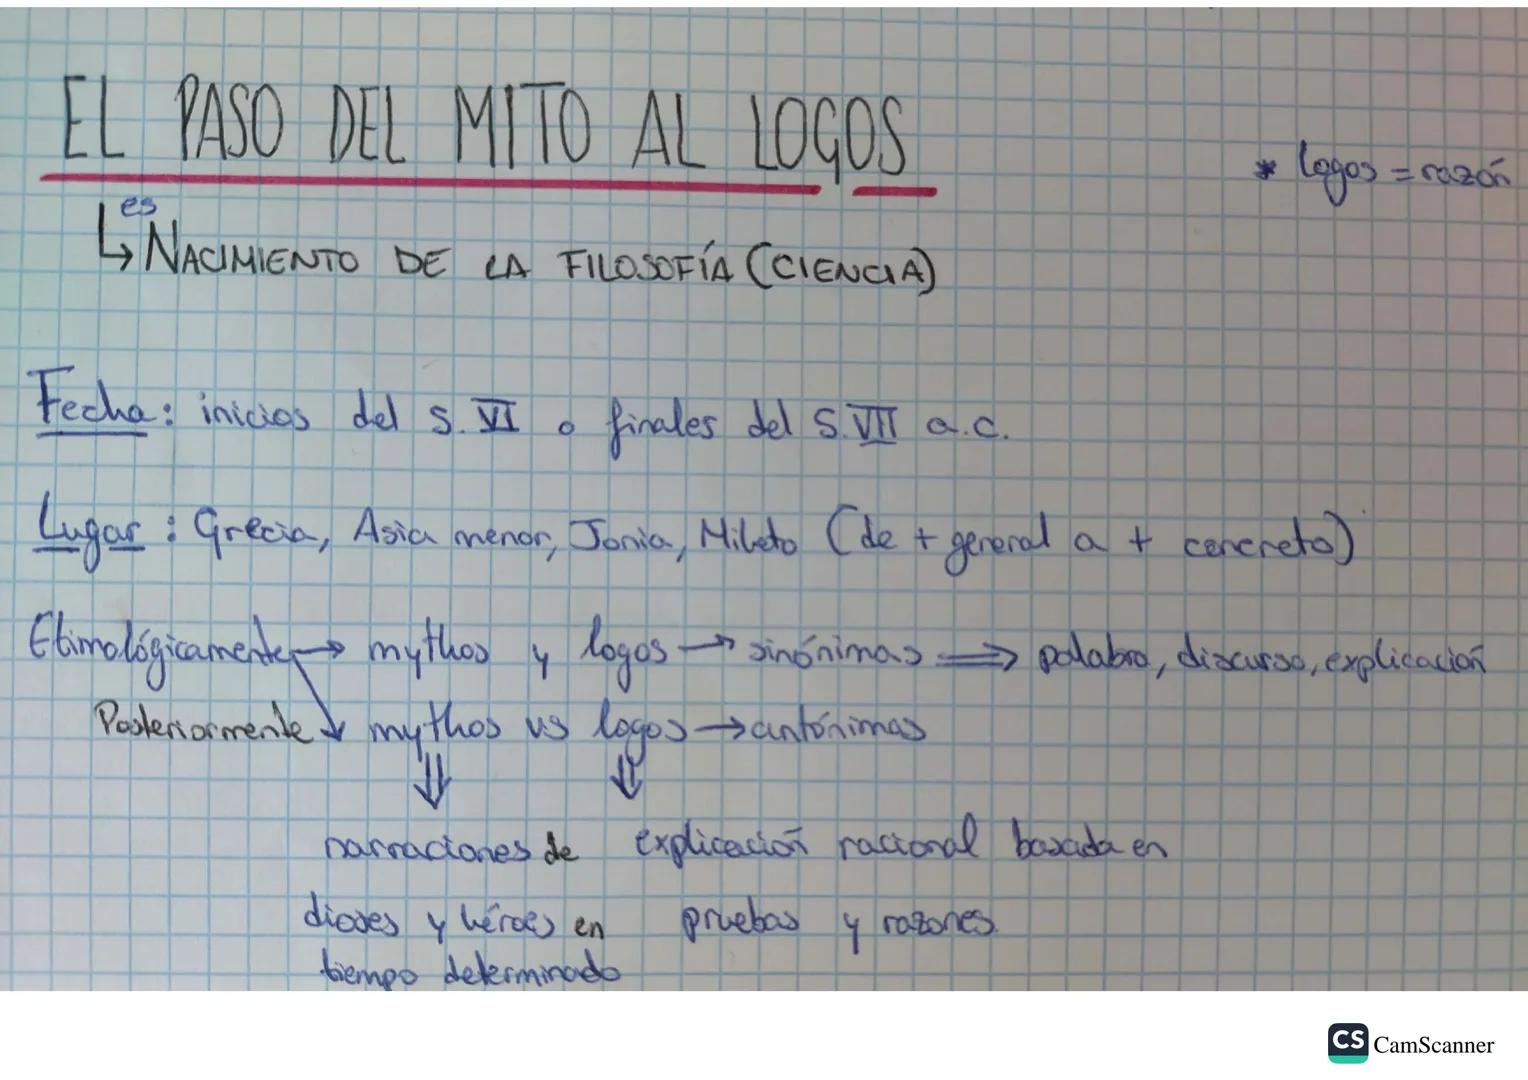 EL PASO DEL MITO AL LOGOS
* logos = razón
↳ es NACIMIENTO DE LA FILOSOFÍA (CIENCIA)
Fecha: inicios del s. VI o finales del S. VII a.c.
Lugar: Grecia, Asia menor, Jonia, Mileto (de + general a + concreto)
Etimológicamente → mythos y logos → sinónimas ⇒ palabra, discurso, explicación
Posteriormente ↘ mythos vs logos → antónimas
⇓ ⇓
narraciones de explicación racional basada en
dioses y héroes en pruebas y razones.
tiempo determinado
CS CamScanner